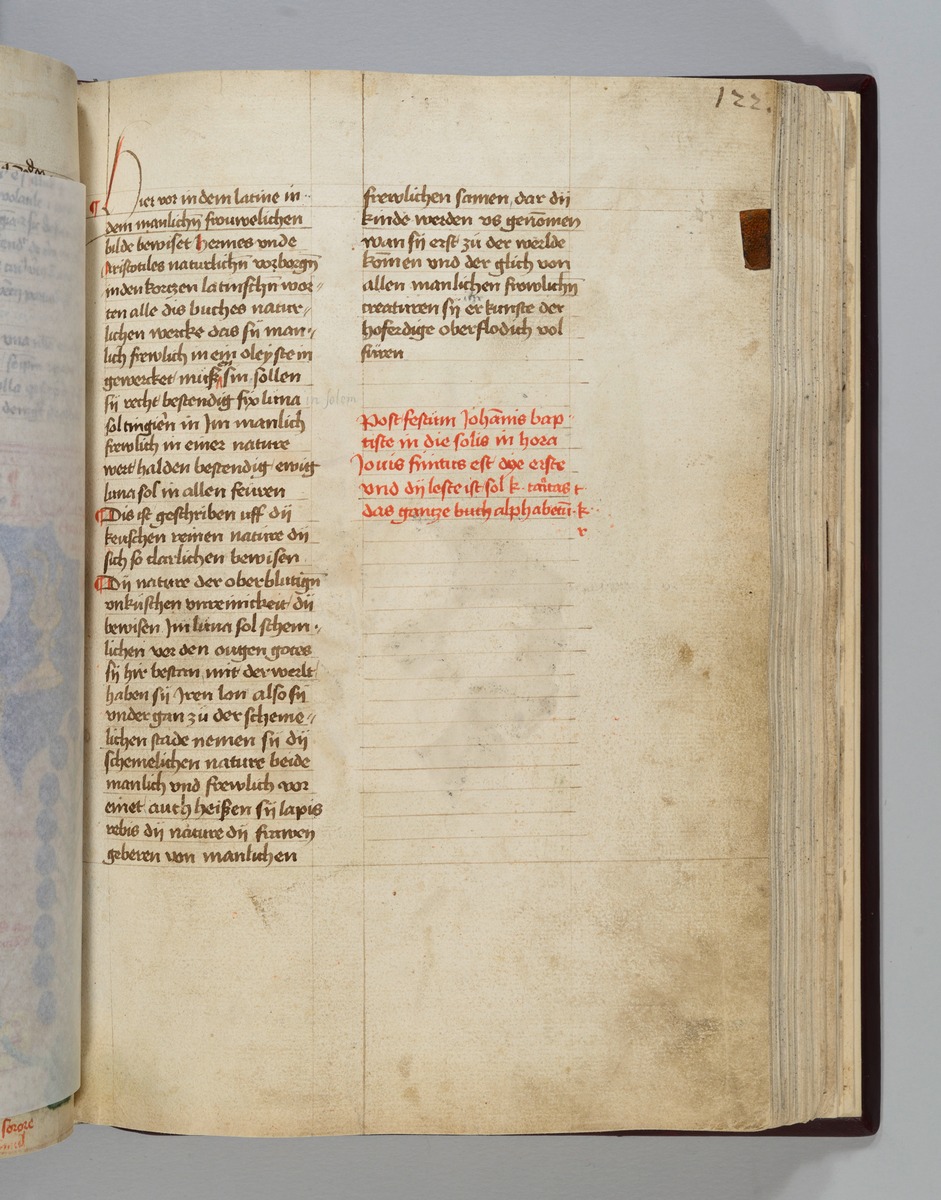 122.
Hier vor in dem latine in
dem manlichn̄ frouwelichen
bilde bewiset hermes vnde
Aristotiles naturlichn̄ vorborgn̄
in den kortzen latinschn̄ wor-
ten alle dis buches natur-
lichen wercke das sÿ man-
lich frewlich in ein oleÿ stein
gewercket muß sin sollen
sÿ recht bestendig fyx luna
in solem
sol tingirn̄ in Im manlich
frewlich in einer nature
wert halden bestendig ewig
luna sol in allen feüren
Dis ist geschriben uff dÿ
keuschen reinen nature dÿ
sich so clarlichen bewisen
Dÿ nature der oberblutign̄
vnküschen vnreinickeit dÿ
bewisen Im luna sol schem-
lichen vor den ougen gotes
sÿ hir bestan mit der werlt
haben sÿ Iren lon also sÿ
vnder gan zü der scheme-
lichen stade nemen sÿ dÿ
schemelichen nature beide
manlich vnd frewlich vor
einet auch heißen sÿ lapis
rebis dÿ nature dÿ frawen
geberen von manlichen
frewlichen samen, dar dÿ
kinde werden vs genōmen
wan sÿ erst zü der werlde
kōmen vnd der glich von
allen manlichen frewlichn̄
creaturen sÿ er kunste der
hoferdige oberflodich vol
füren
Post festum Johānis bap-
tiste in die solis in hora
Jouis finitus est dye erste
vnd dÿ leste ist sol k
das gantze buch alphabetū · k ·
r
sorore